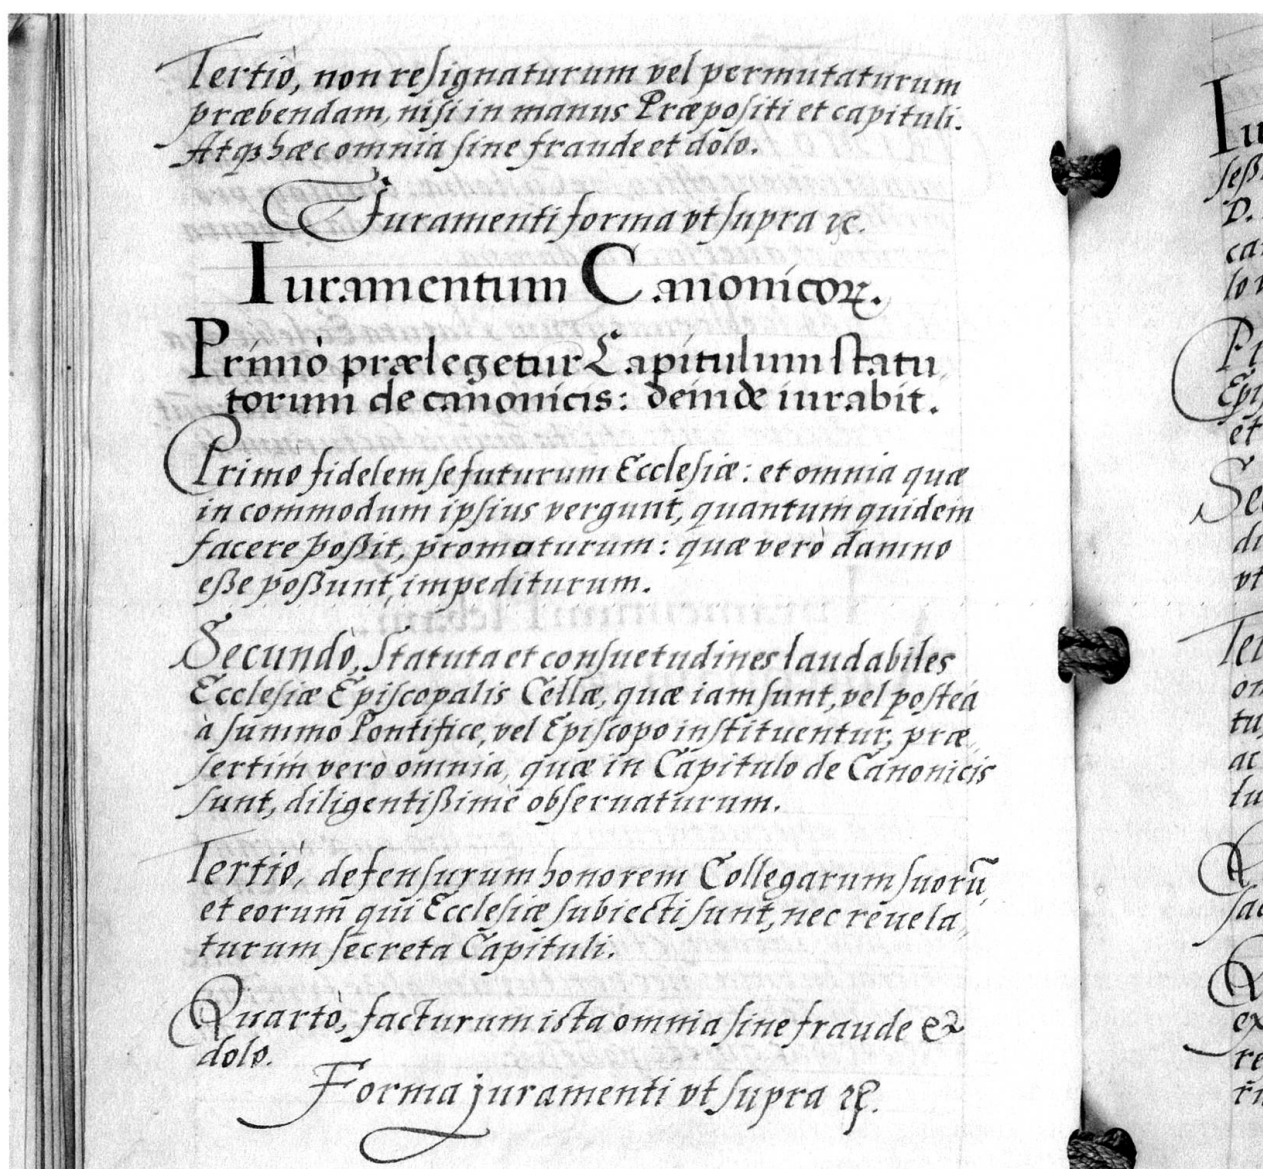 Tertiò, non resignaturum vel permutaturum
præbendam, nisi in manus Præpositi et capituli.
Atqꝫ hæc omnia sine fraude et dolo.
Juramenti forma vt supra ꝛc.
Iuramentum Canonicoꝝ.
Primò prælegetur Capitulum statu,
torum de canonicis: deinde iurabit.
Primo fidelem se futurum Ecclesiæ: et omnia quæ
in commodum ipsius vergunt, quantum quidem
facere poßit, promoturum: quæ verò damno
eße poßunt, impediturum.
Secundò, Statuta et consuetudines laudabiles
Ecclesiæ Episcopalis Cellæ, quæ iam sunt, vel posteà
à summo Pontifice, vel Episcopo instituentur, præ,
sertim verò omnia, quæ in Capitulo de Canonicis
sunt, diligentißimè obseruaturum.
Tertiò, defensurum honorem Collegarum suorũ,
et eorum qui Ecclesiæ subiecti sunt, nec reuela,
turum secreta Capituli.
Quartò, facturum ista omnia sine fraude &
dolo.
Forma juramenti vt supra ꝛc.
Iu
seß
D.
ca
lo
Pr
Epi
et
Se
di
vt
Ter
on
tu
ac
lu
A
sac
Q
ex
re